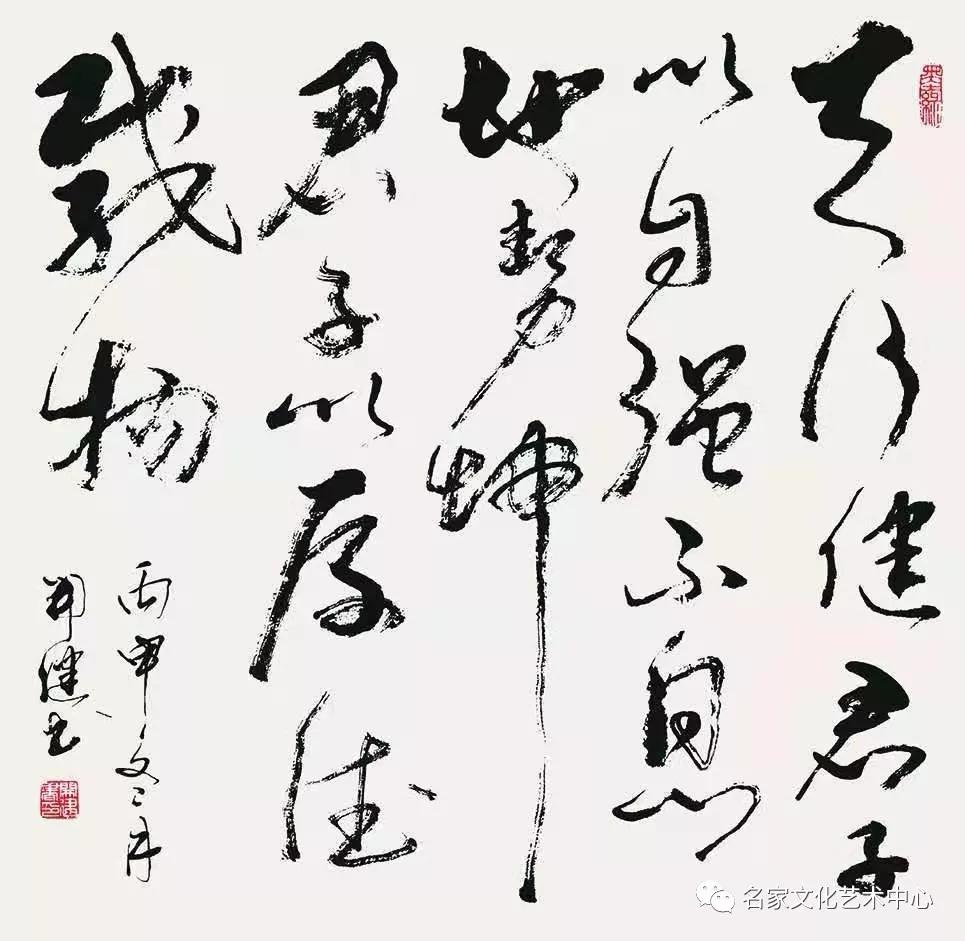 天行健君子
以自强不息
地势坤
君子以厚德
载物
丙申冬月
开健书
名家文化艺术中心